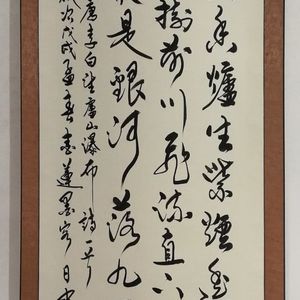 香爐生紫煙遙
掛前川飛流直下
是銀河落九
唐李白望廬山瀑布詩一首
歲次戊戌孟春書蓮墨客日